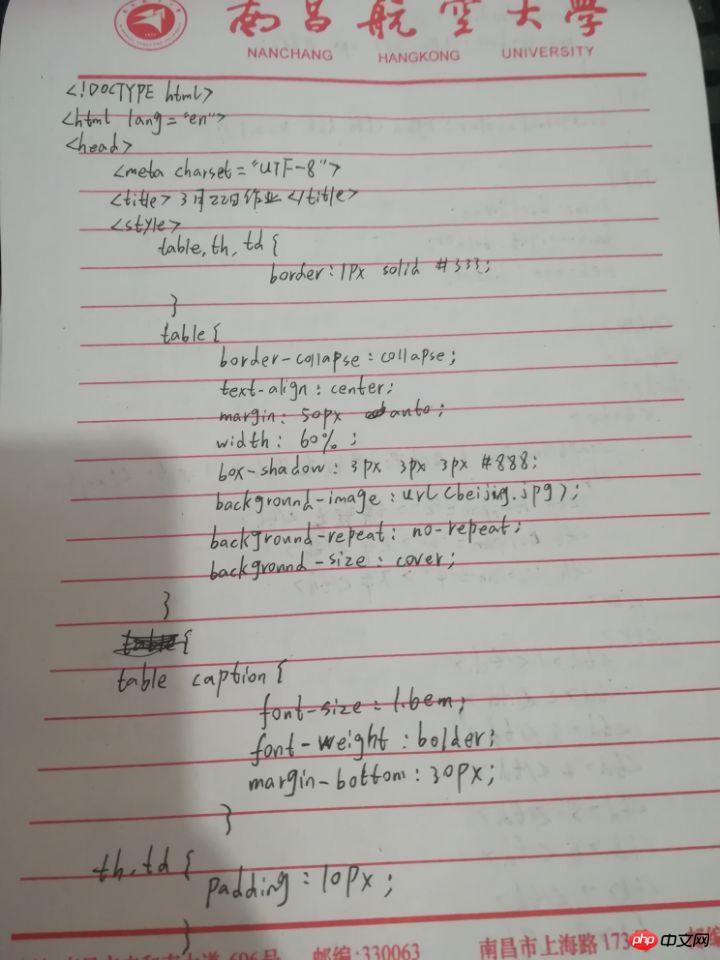 南昌航空大学
NANCHANG HANGKONG UNIVERSITY
<!DOCTYPE html>
<html lang="en">
<head>
<meta charset="UTF-8">
<title>3月22日作业</title>
<style>
table,th,td{
border:1px solid #333;
}
table{
border-collapse:collapse;
text-align:center;
margin:50px auto;
width:60%;
box-shadow:3px 3px 3px #888;
background-image:url(beijing.jpg);
background-repeat:no-repeat;
background-size:cover;
}
{
table caption{
font-size:1.6em;
font-weight:bolder;
margin-bottom:30px;
}
th,td{
padding:10px;
}
696号 邮编:330063 南昌市上海路173
php 中文网